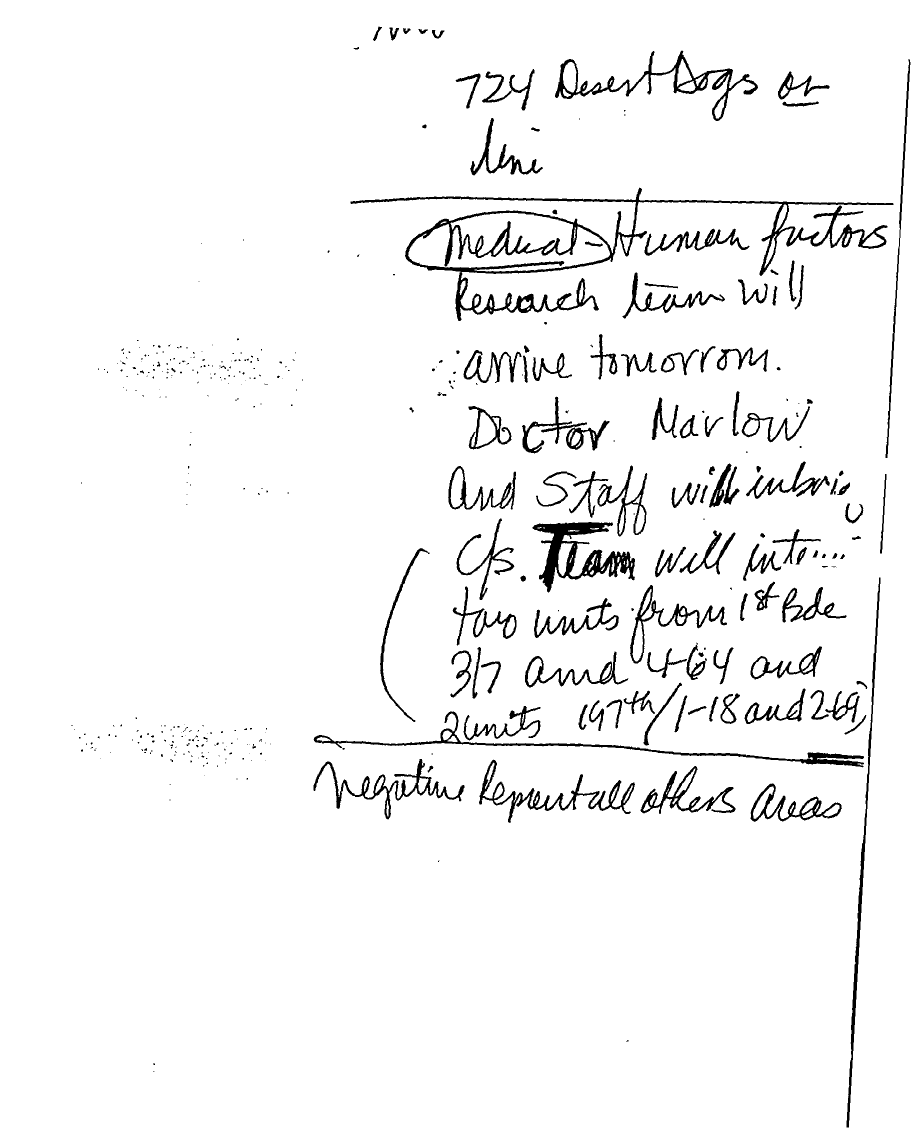 724 Desert Dogs on
line
Medical - Human factors
Research team will
arrive tomorrow.
Doctor Marlow
and Staff will inbrief
C/S. Team will
two units from 1st Bde
3/7 and 4-64 and
2 units 197th/1-18 and 2-69,
Negative Report all others areas